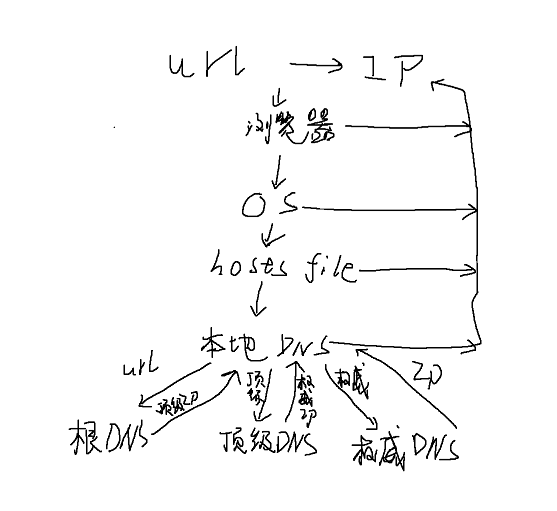 url → IP
浏览器
OS
hosts file
本地 DNS
url
顶级IP
顶级
权威IP
权威
IP
根DNS
顶级DNS
权威DNS